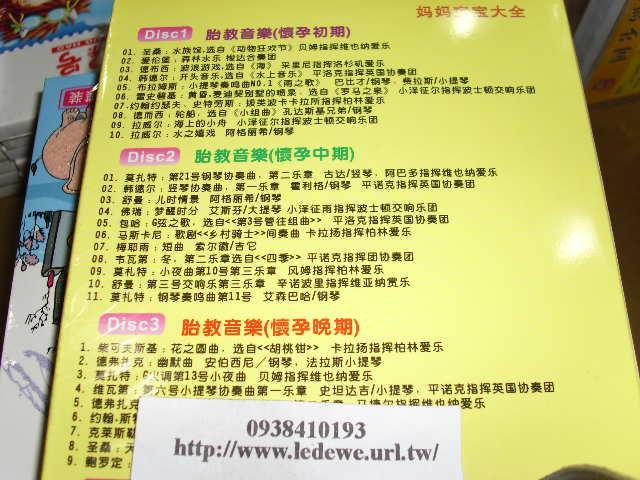 妈妈宝宝大全
Disc1 胎教音樂(懷孕初期)
01. 圣桑:水族馆,选自《动物狂欢节》贝姆指挥维也纳爱乐
02. 爱伦堡:森林水乐 梭达合奏团
03. 德布西:波浪游戏,选自《海》 采里尼指挥洛杉机爱乐
04. 韩德尔:开头音乐,选自《水上音乐》 平洛克指挥英国协奏团
05. 布拉姆斯:小提琴奏鸣曲NO.1《雨之歌》 巴比才/钢琴、费拉斯/小提琴
06. 雷史碧基:黄昏,麦迪契别墅的喷泉,选自《罗马之泉》 小泽征尔指挥波士顿交响乐团
07. 约翰约瑟夫、史特劳斯:拨类波卡卡拉所指挥柏林爱乐
08. 德而西:轮船,选自《小组曲》孔达斯基兄弟/钢琴
09. 拉威尔:海上的小舟 小泽征尔指挥波士顿交响乐团
10. 拉威尔:水之嬉戏 阿格丽希/钢琴
Disc2 胎教音樂(懷孕中期)
01. 莫扎特:第21号钢琴协奏曲,第二乐章 古达/竖琴,阿巴多指挥维也纳爱乐
02. 韩德尔:竖琴协奏曲,第一乐章 霍利格/钢琴 平诺克指挥英国协奏团
03. 舒曼:儿时情景 阿格丽希/钢琴
04. 佛瑞:梦醒时分 艾斯芬/大提琴 小泽征雨指挥波士顿交响乐团
05. 包哈:G弦之歌,选自<<第3号管往组曲>> 平洛克指挥英国协奏团
06. 马斯卡尼:歌剧<<乡村骑士>>间奏曲 卡拉扬指挥柏林爱乐
07. 梅耶雨:短曲 索尔徽/吉它
08. 韦瓦第:冬,第二乐章选自<<四季>> 平诺克指挥团协奏团
09. 莫扎特:小夜曲第10号第三乐章 风姆指挥柏林爱乐
10. 舒曼:第三号交响乐第三乐章 辛诺波里指挥维亚纳赏乐
11. 莫扎特:钢琴奏鸣曲第11号 艾森巴哈/钢琴
Disc3 胎教音樂(懷孕晚期)
1. 柴可夫斯基:花之圆曲,选自<<胡桃钳>> 卡拉扬指挥柏林爱乐
2. 德弗扎克:幽默曲 安伯西尼/钢琴,法拉斯小提琴
3. 莫扎特:G大调第13号小夜曲 贝姆指挥维也纳爱乐
4. 维瓦第:第六号小提琴协奏曲第一乐章 史坦达吉/小提琴,平诺克指挥英国协奏团
5. 德弗扎克
6. 约翰.斯特
7. 克莱斯勒
8. 圣桑:天
9. 鲍罗定:
0938410193
http://www.ledewe.url.tw/